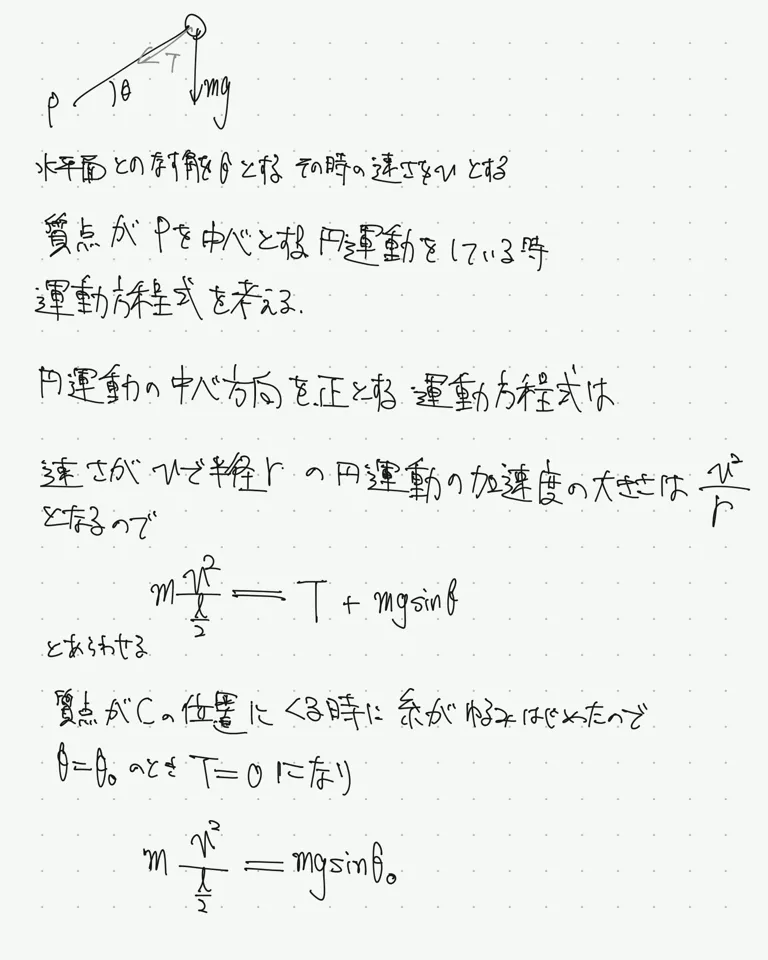 T
P
θ
mg
水平面とのなす角をθとする その時の速さをvとする
質点がPを中心とする円運動をしている時
運動方程式を考える.
円運動の中心方向を正とする運動方程式は
速さがvで半径rの円運動の加速度の大きさは v²/r
となるので
m v²/(l/2) = T + mgsinθ
とあらわせる
質点がCの位置にくる時に糸がゆるみはじめたので
θ=θ₀のとき T=0になり
m v²/(l/2) = mgsinθ₀